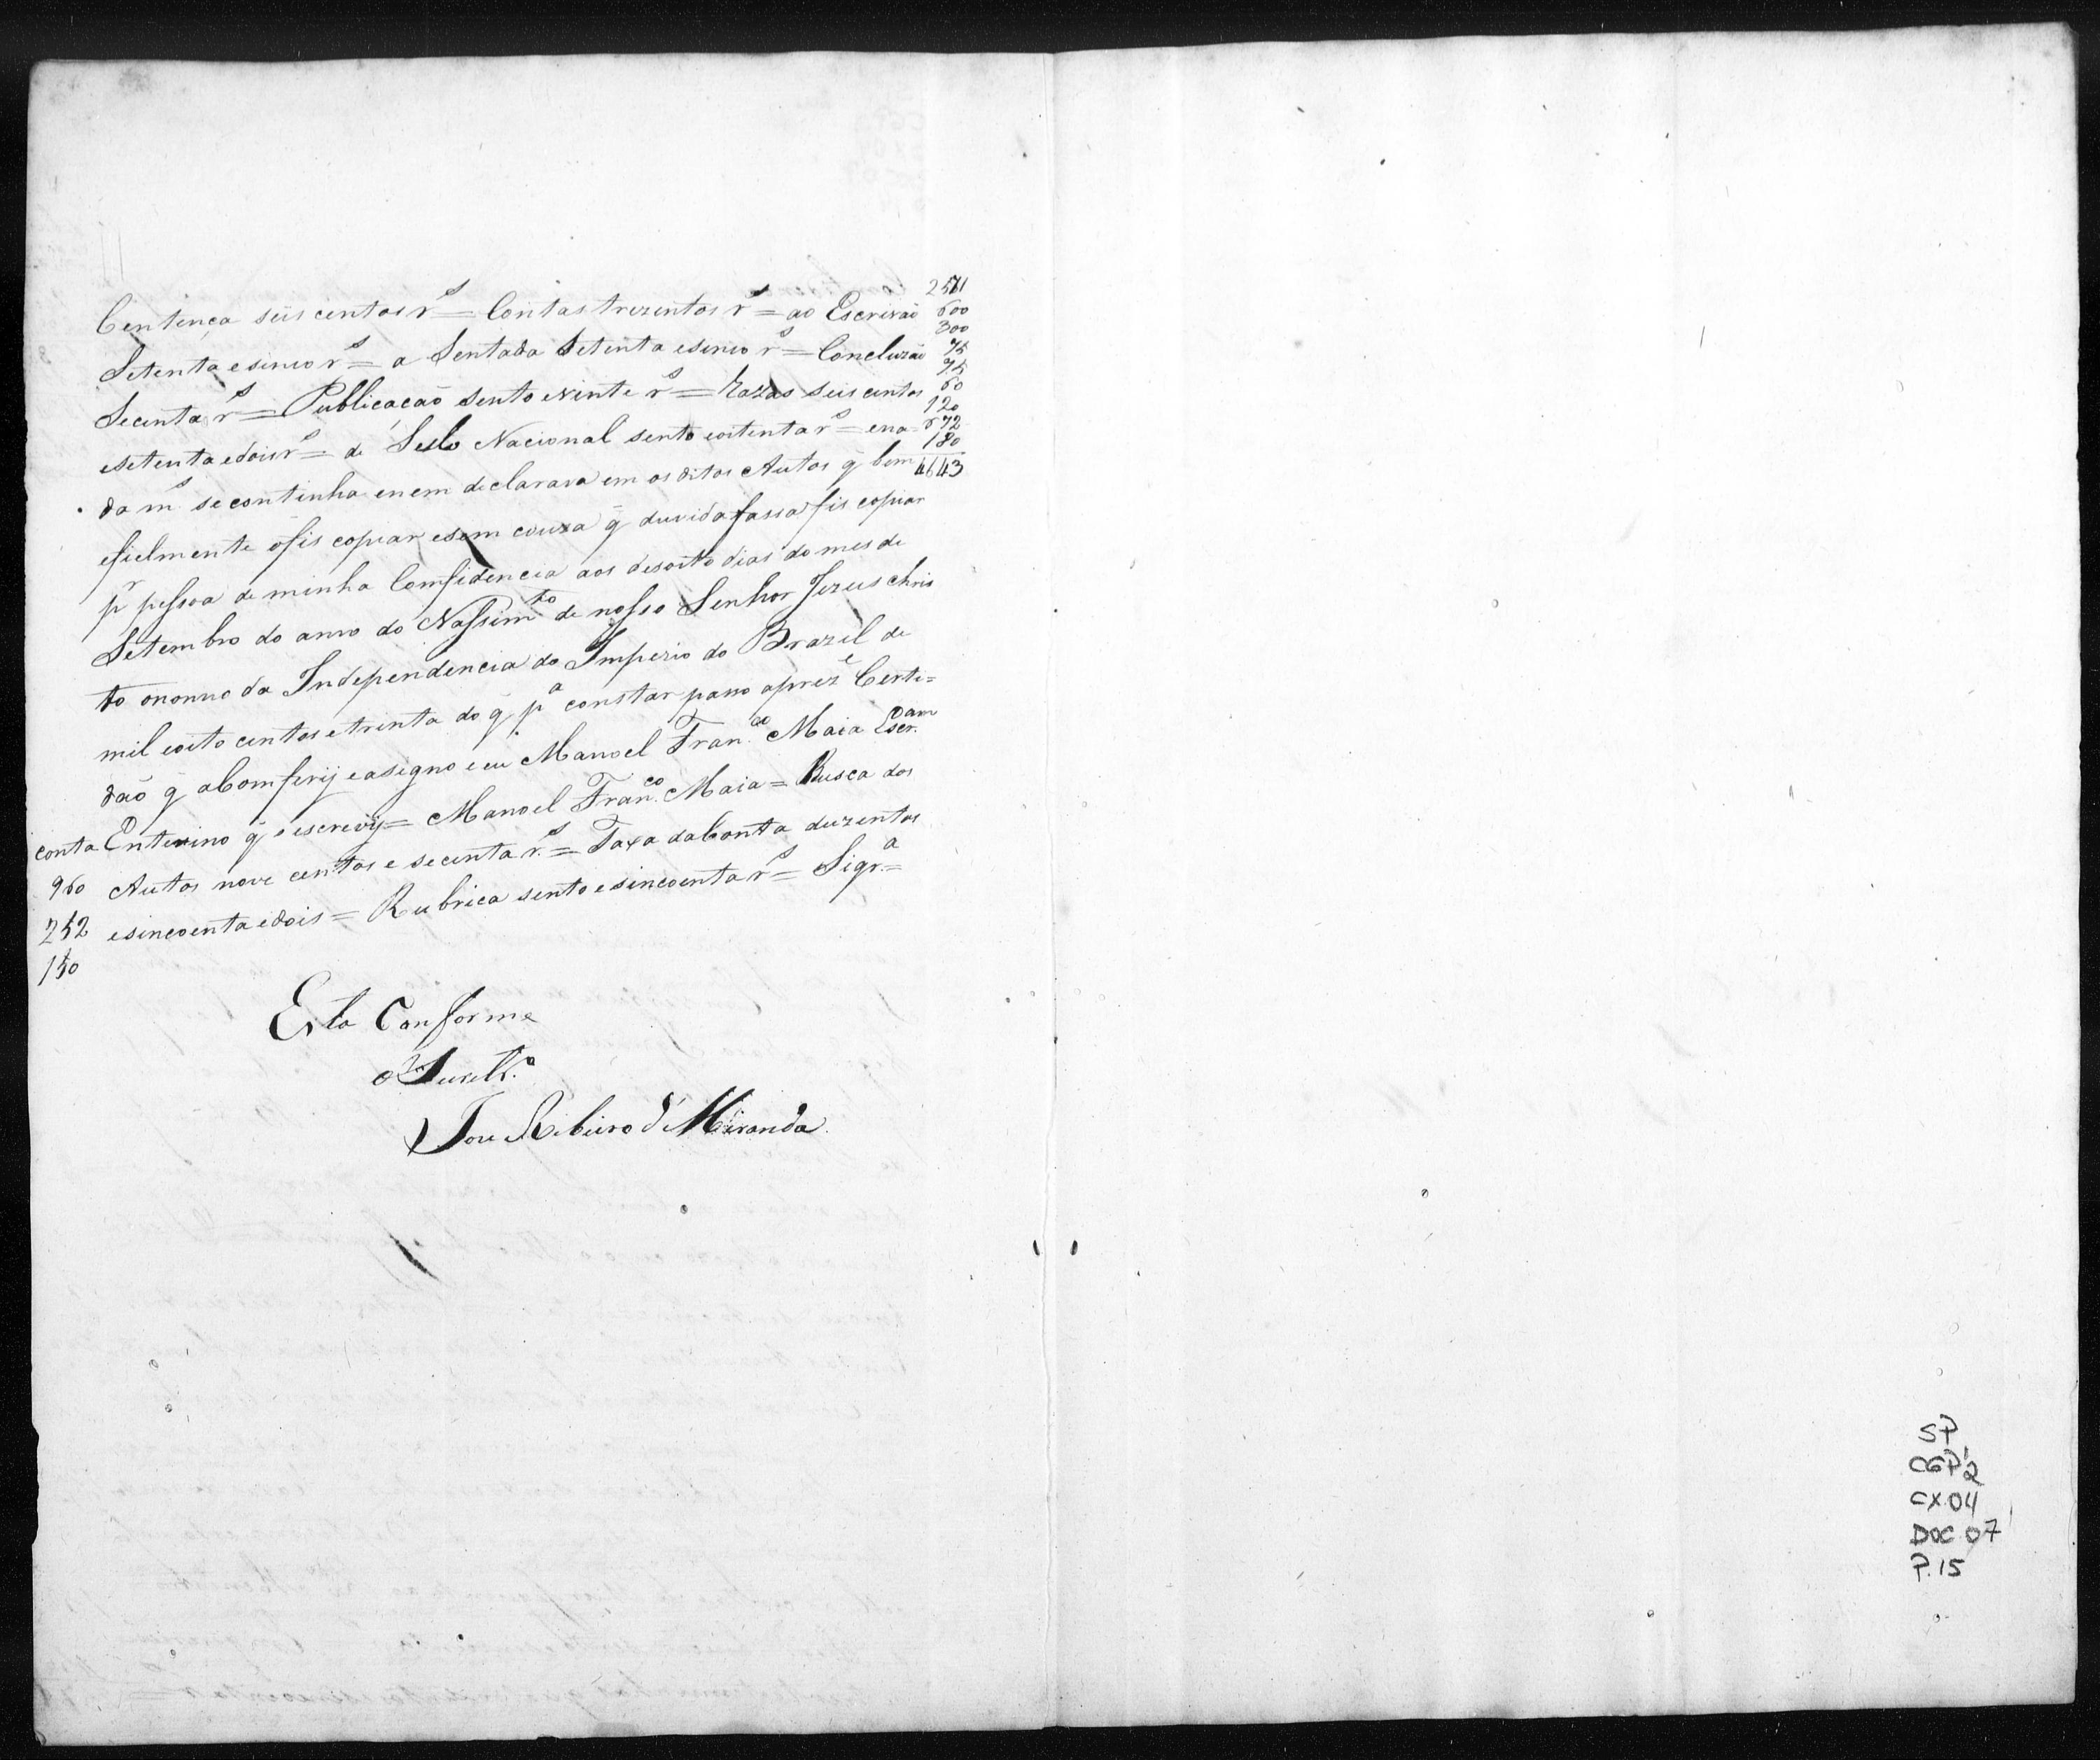 2561
Centença seis centos rˢ = Contas trezentos rˢ = ao Escrivão 600
300
Setenta esinco rˢ = a Sentada Setenta esinco rˢ = Concluzão 75
75
Secenta rˢ = Publicação sento evinte rˢ = Razas seis centos 60
120
esetenta edois rˢ = de Sello Nacional sento eoitenta rˢ = ena 672
180
da mˢ secontinha enem declarava em os ditos Autos q̃ bem 4643
efielmente ofis copiar esem couza q̃ duvida fassa fis copiar
pʳ pessoa de minha Comfidencia aos desoito dias do mes de
Setembro do anno do Nassimᵗᵒ de nosso Senhor Jezus chris
to onono da Independencia do Imperio do Brazil de
mil eoito centos etrinta do q̃ pᵃ constar passo aprezᵉ Certi=
dão q̃ aComferij easigno e eu Manoel Franᶜᵒ Maia Escrᵃᵐ
conta Enterino q̃ o escrevij = Manoel Franᶜᵒ Maia = Busca dos
960 Autos nove centos e secenta rˢ = Taxa daConta duzentos
252 esincoenta edois = Rubrica sento esincoenta rˢ = Sigrᵃ =
150
Esta Conforme
o Secretᵒ
Joze Ribeiro d'Miranda
SP
CGP2
CX.04
DOC 07
P.15